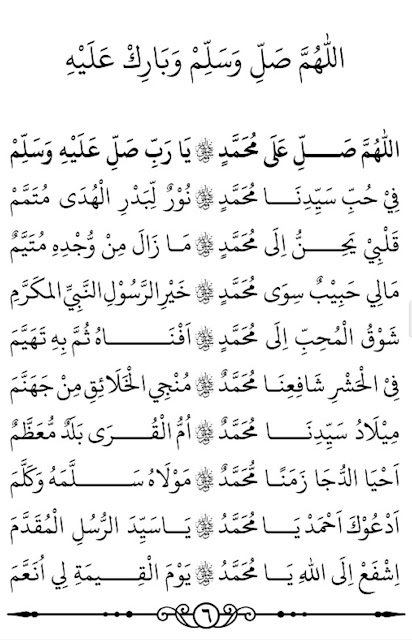 اللّٰهُمَّ صَلِّ وَسَلِّمْ وَبَارِكْ عَلَيْهِ
اللّٰهُمَّ صَلِّ عَلَى مُحَمَّدٍ ﷺ يَا رَبِّ صَلِّ عَلَيْهِ وَسَلِّمْ
فِيْ حُبِّ سَيِّدِنَا مُحَمَّدٍ ﷺ نُوْرٌ لِّبَدْرِ الْهُدَى مُتَمَّمْ
قَلْبِيْ يَحِنُّ اِلَى مُحَمَّدٍ ﷺ مَا زَالَ مِنْ وُّجْدِهِ مُتَيَّمٌ
مَالِي حَبِيْبٌ سِوَى مُحَمَّدٍ ﷺ خَيْرِ الرَّسُوْلِ النَّبِيِّ المكَرَّمِ
شَوْقُ الْمُحِبِّ اِلَى مُحَمَّدٍ ﷺ اَفْنَاهُ ثُمَّ بِهِ تَهَيَّمَ
فِي الْحَشْرِ شَافِعِنَا مُحَمَّدٌ ﷺ مُنْجِي الْخَلَائِقِ مِنْ جَهَنَّمَ
مِيْلَادُ سَيِّدِنَا مُحَمَّدٌ ﷺ اُمُّ الْقُرَى بَلَدٌ مُّعَظَّمٌ
اَحْيَا الدُّجَا زَمَنًا مُّحَمَّدٌ ﷺ مَوْلَاهُ سَلَّمَهُ وَكَلَّمَ
اَدْعُوْكَ اَحْمَدْ يَا مُحَمَّدُ ﷺ يَاسَيِّدَ الرُّسُلِ الْمُقَدَّمَ
اِشْفَعْ اِلَى اللهِ يَا مُحَمَّدُ ﷺ يَوْمَ الْقِيمَةِ لِي اُنَعَّمَ
٦